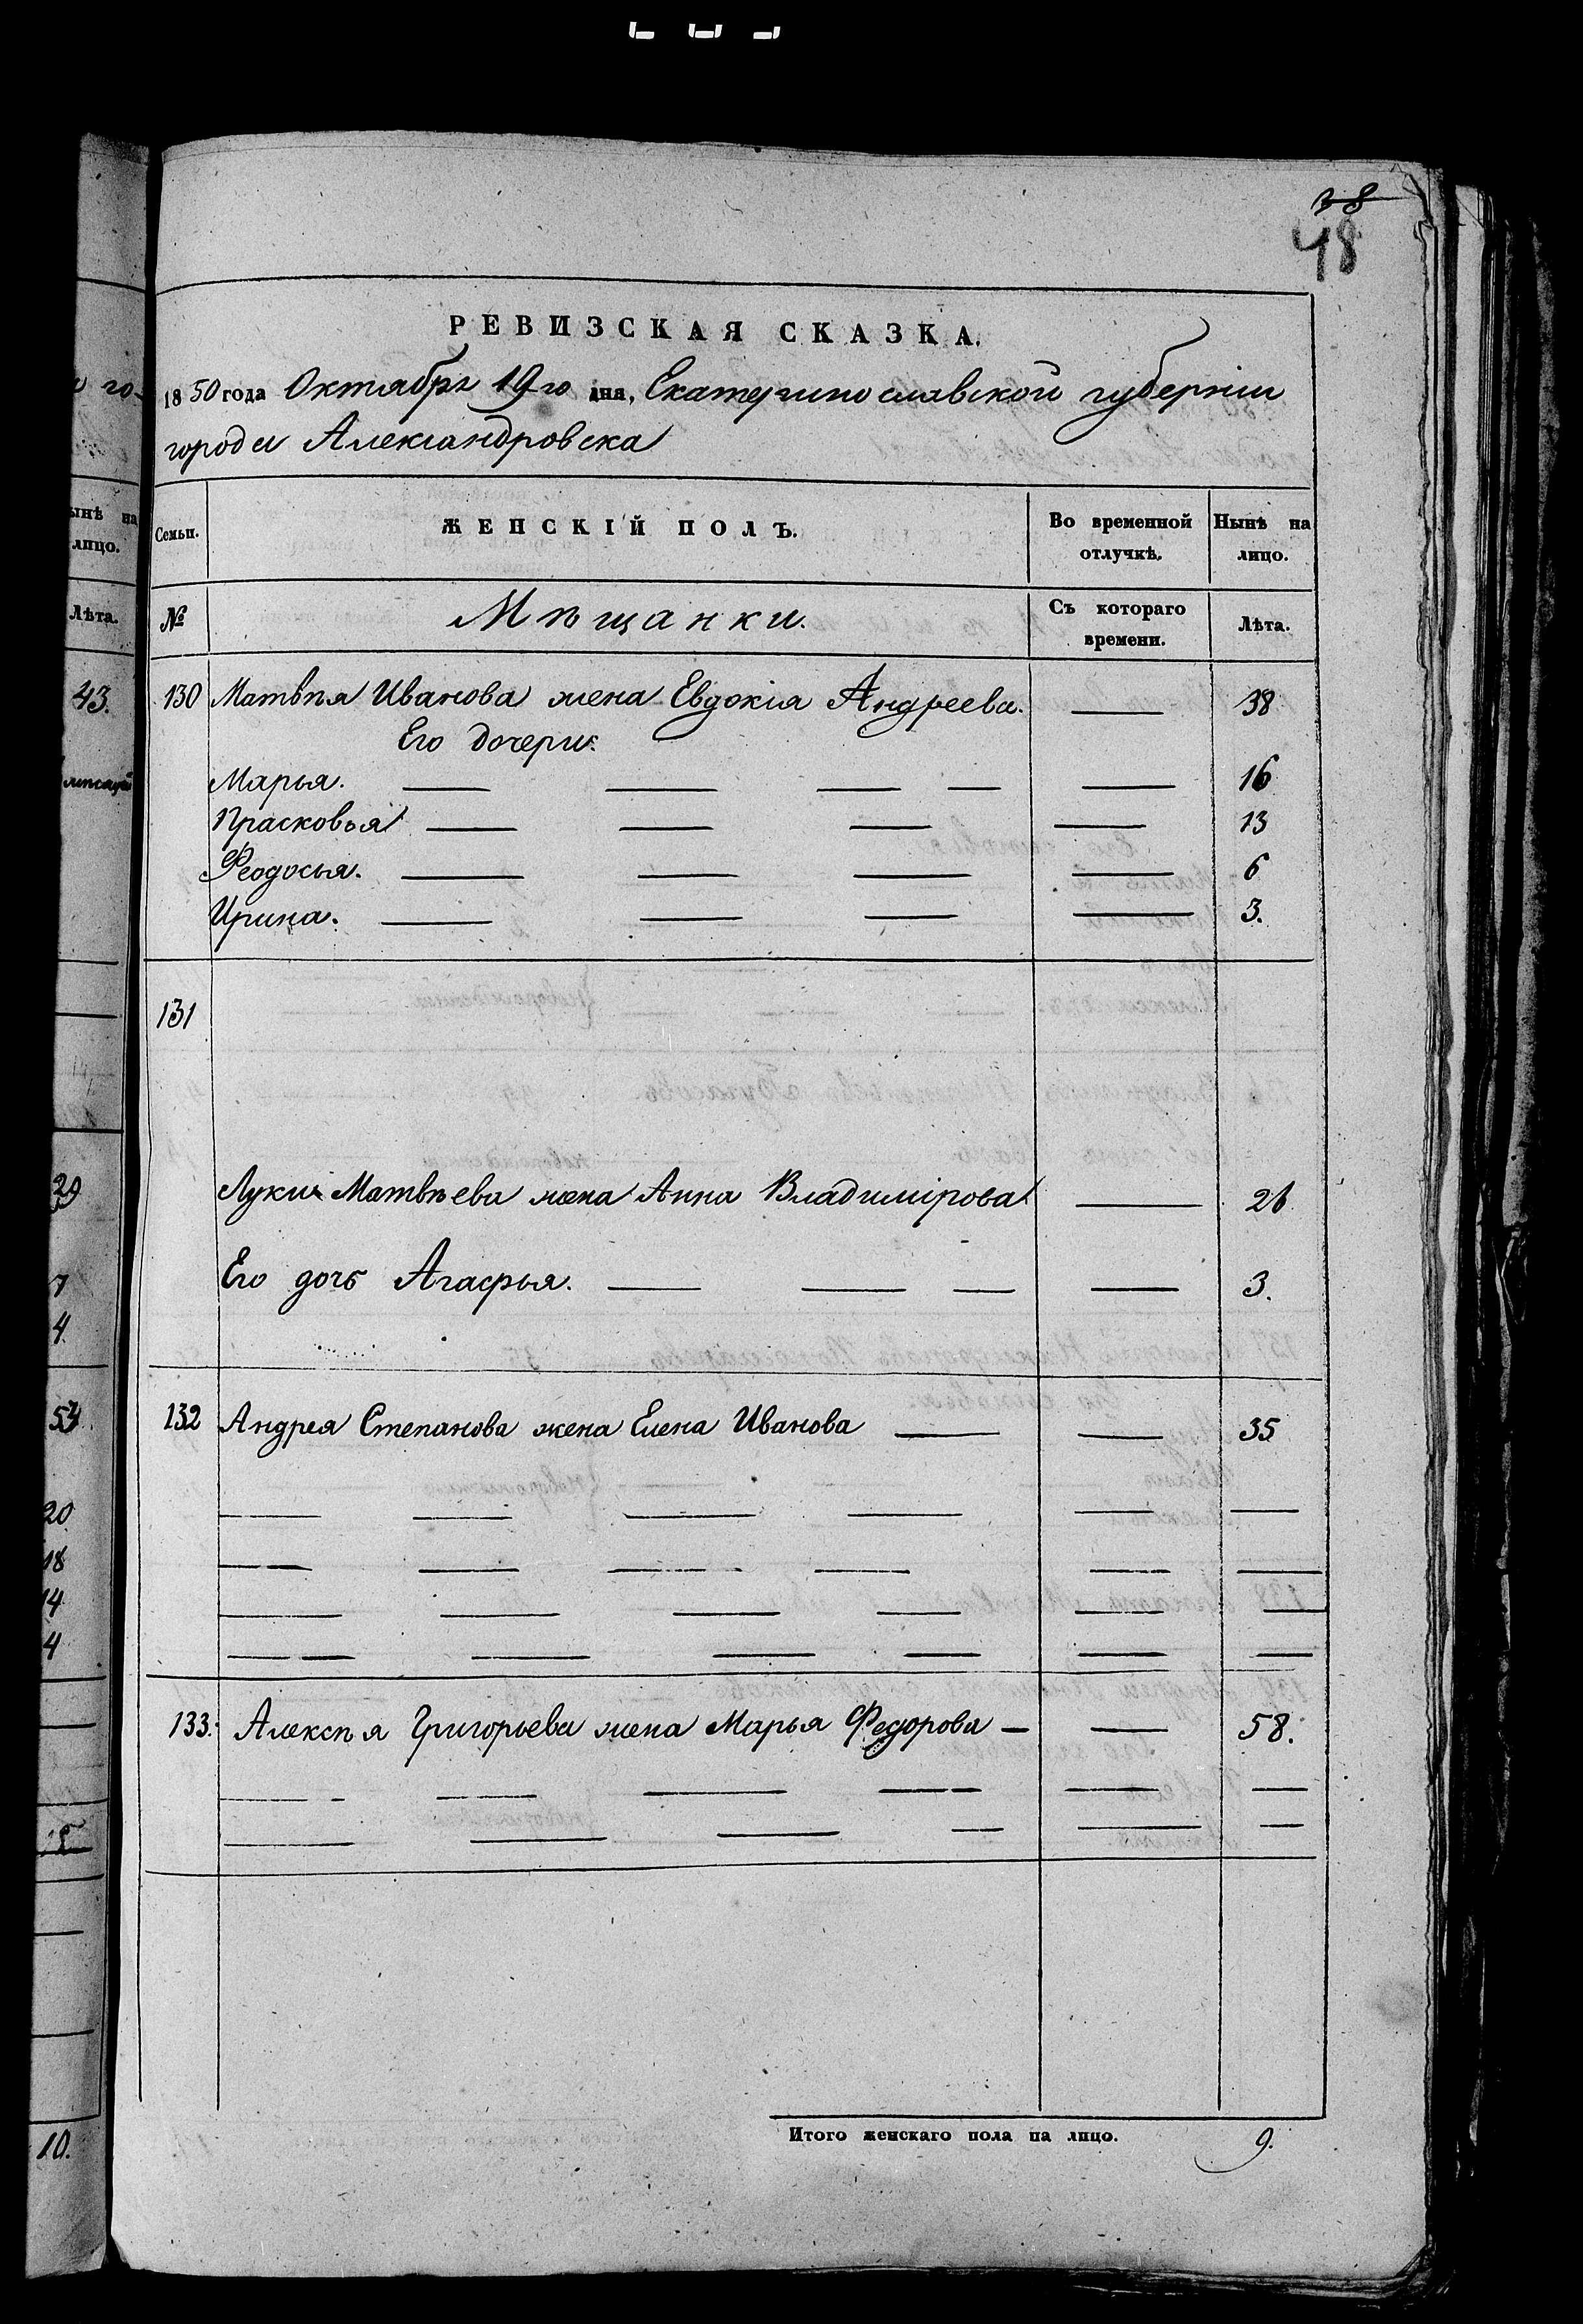 38
48
РЕВИЗСКАЯ СКАЗКА.
1850 года Октября 19го дня, Екатеринославской губерніи
города Александровска
Семьи. ЖЕНСКІЙ ПОЛЪ. Во временной отлучкѣ. Нынѣ на лицо.
№ Мѣщанки. Съ котораго времени. Лѣта.
130 Матвѣя Иванова жена Евдокія Андреева. — 38
Его дочери:
Марья. — — — — — 16
Прасковья — — — — 13
Феодосья. — — — — 6
Ирина. — — — — 3.
131
Луки Матвѣева жена Анна Владимірова — 26
Его дочь Агафья. — — — — 3.
132 Андрея Степанова жена Елена Иванова — — 35
133. Алексѣя Григорьева жена Марья Федорова — — 58.
Итого женскаго пола на лицо. 9.
го-
ынѣ на
лицо.
Лѣта.
43.
29
7
4
20
18
14
4
10.